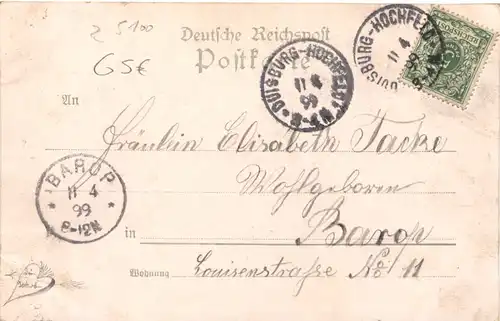 2 5100
65€
Deutsche Reichspost
Postkarte
DUISBURG-HOCHFELD
11 4
99
DUISBURG-HOCHFELD
11 4
99
8-9N
An
Fräulein Elisabeth Tacke
Wohlgeboren
in Barop
Wohnung Louisenstraße No 11
BAROP
11 4
99
8-12N